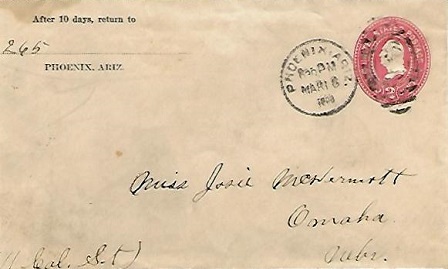 After 10 days, return to
265
PHOENIX, ARIZ.
PHOENIX
MAR 16
2
Miss Josie McDermott
Omaha
Nebr.
Cal. St)